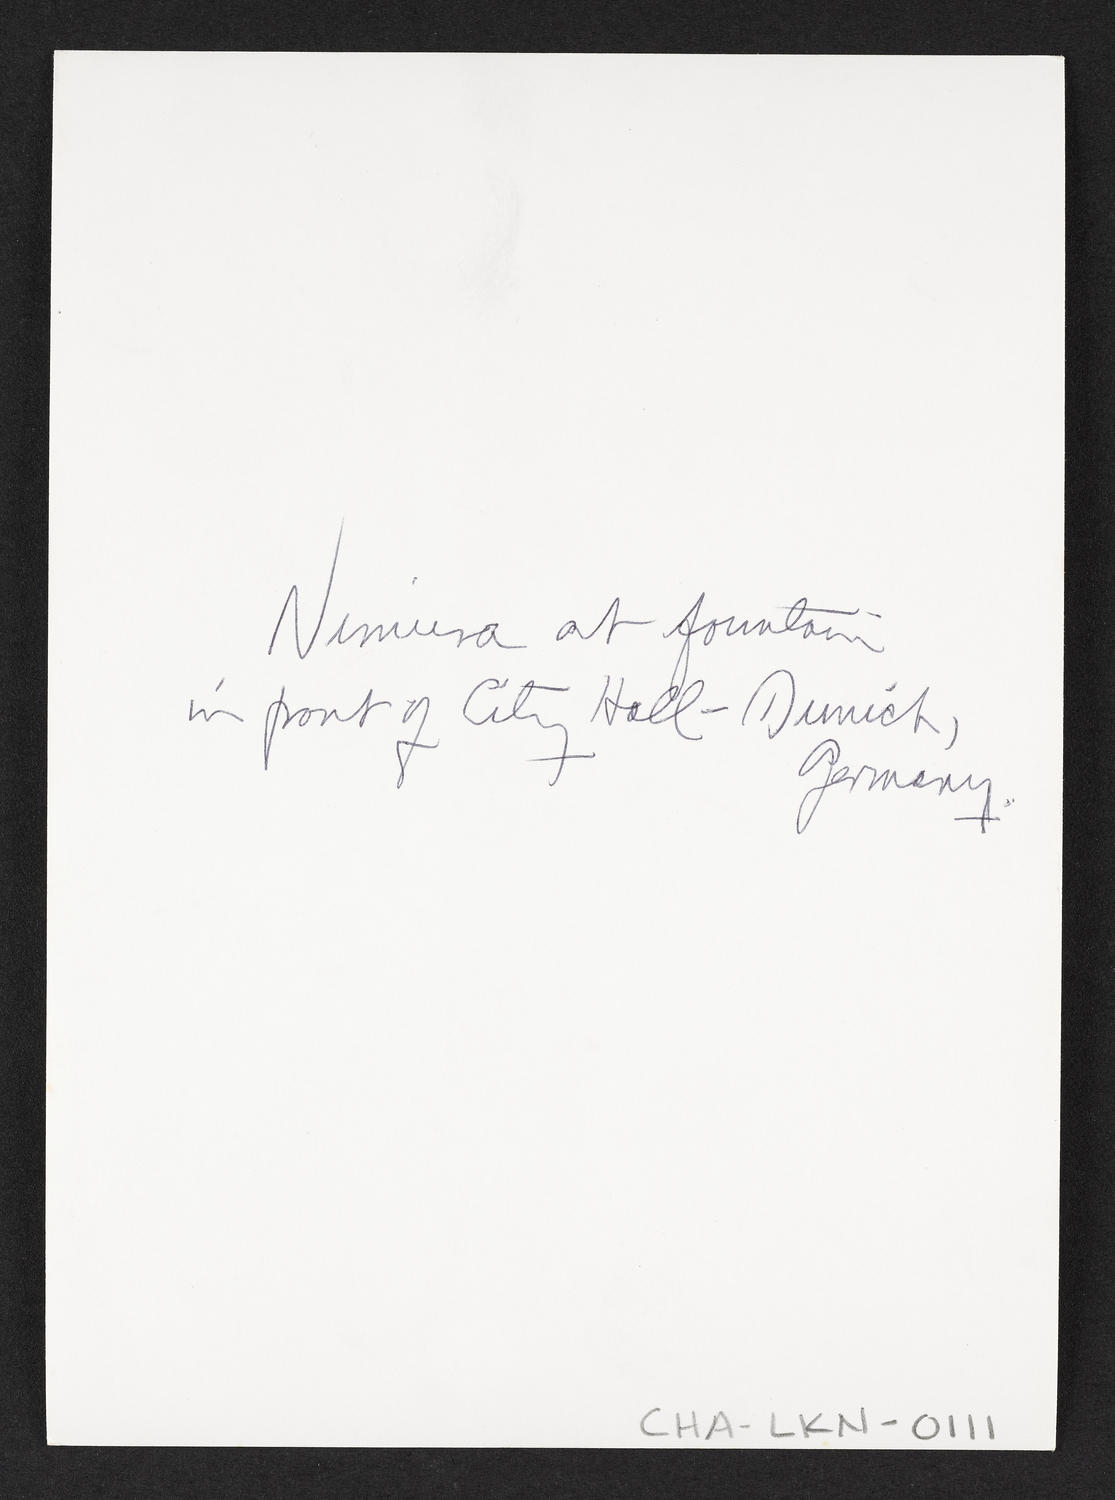 Nimiera at fountain
in front of City Hall - Dunich,
Germany.
CHA-LKN-0111